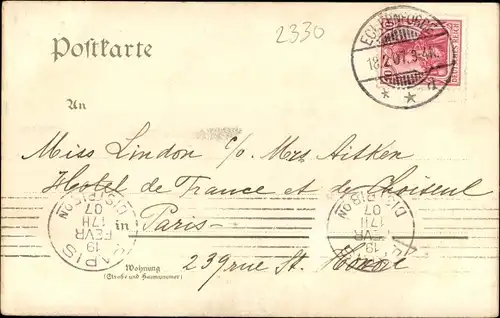 2330
Postkarte
18.2.07.
DEUTSCHES REICH
An
Miss Lindon c/o Mrs Aitken
Hotel de France et de Choiseul
in Paris
239 rue St. Honoré
Wohnung
(Straße und Hausnummer)
PARIS
17H
19
FEVR
07
DISTRIBON
17H
19
FEVR
07
DISTRIBON